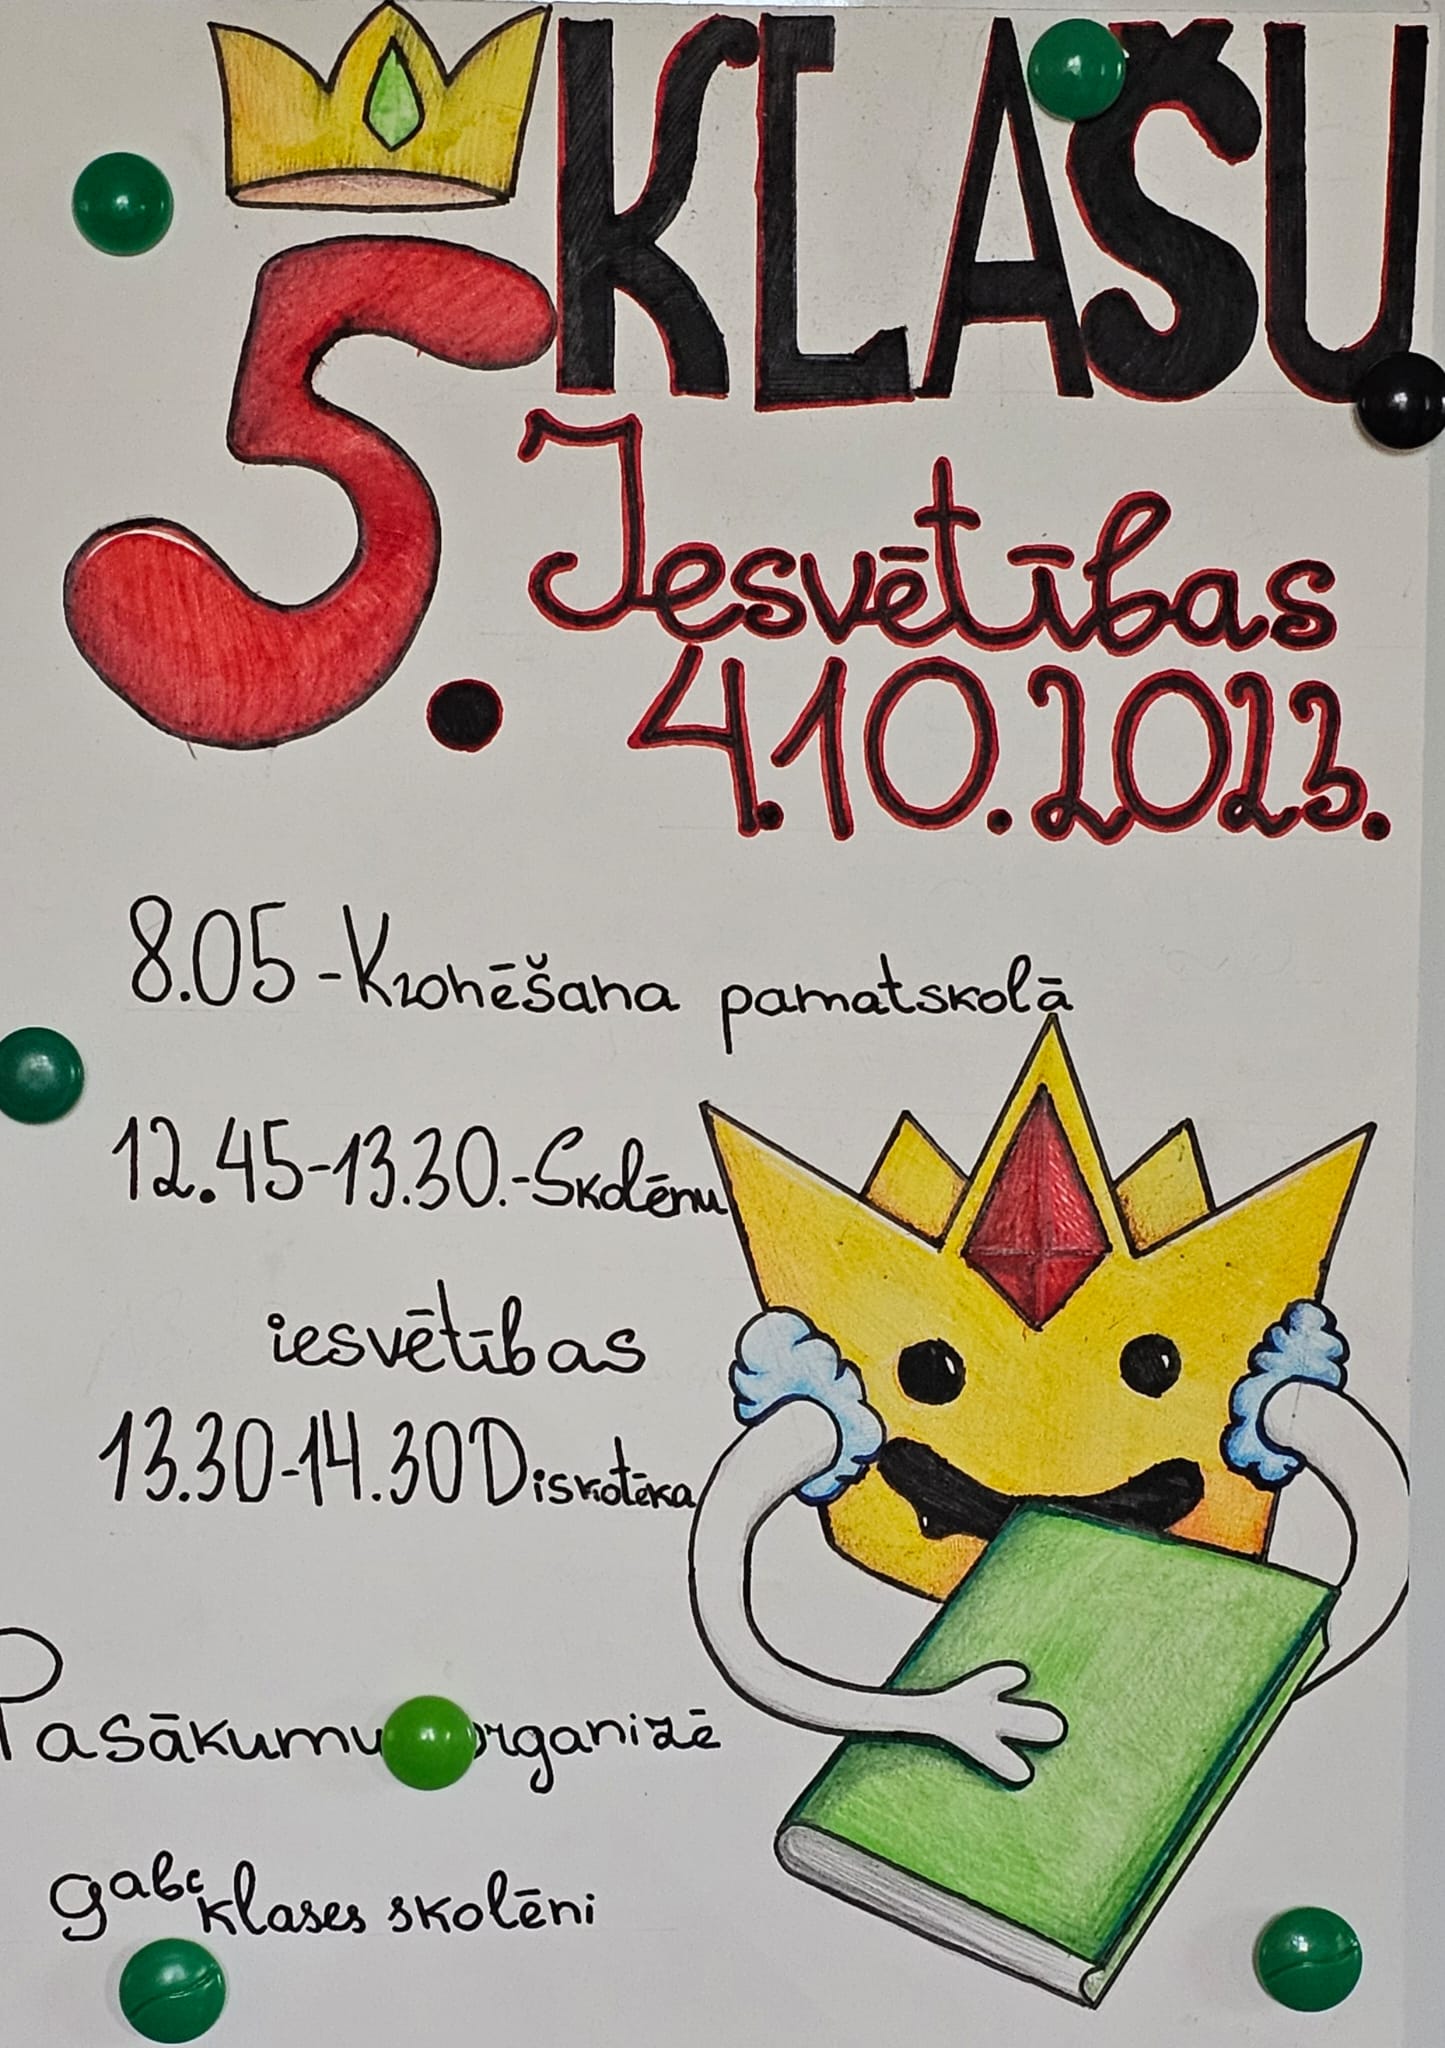 5. KLAŠU
Iesvētības
4.10.2023.
8.05 - Kronēšana pamatskolā
12.45-13.30.-Skolēnu
iesvētības
13.30-14.30 Diskotēka
Pasākumu organizē
9abc klases skolēni